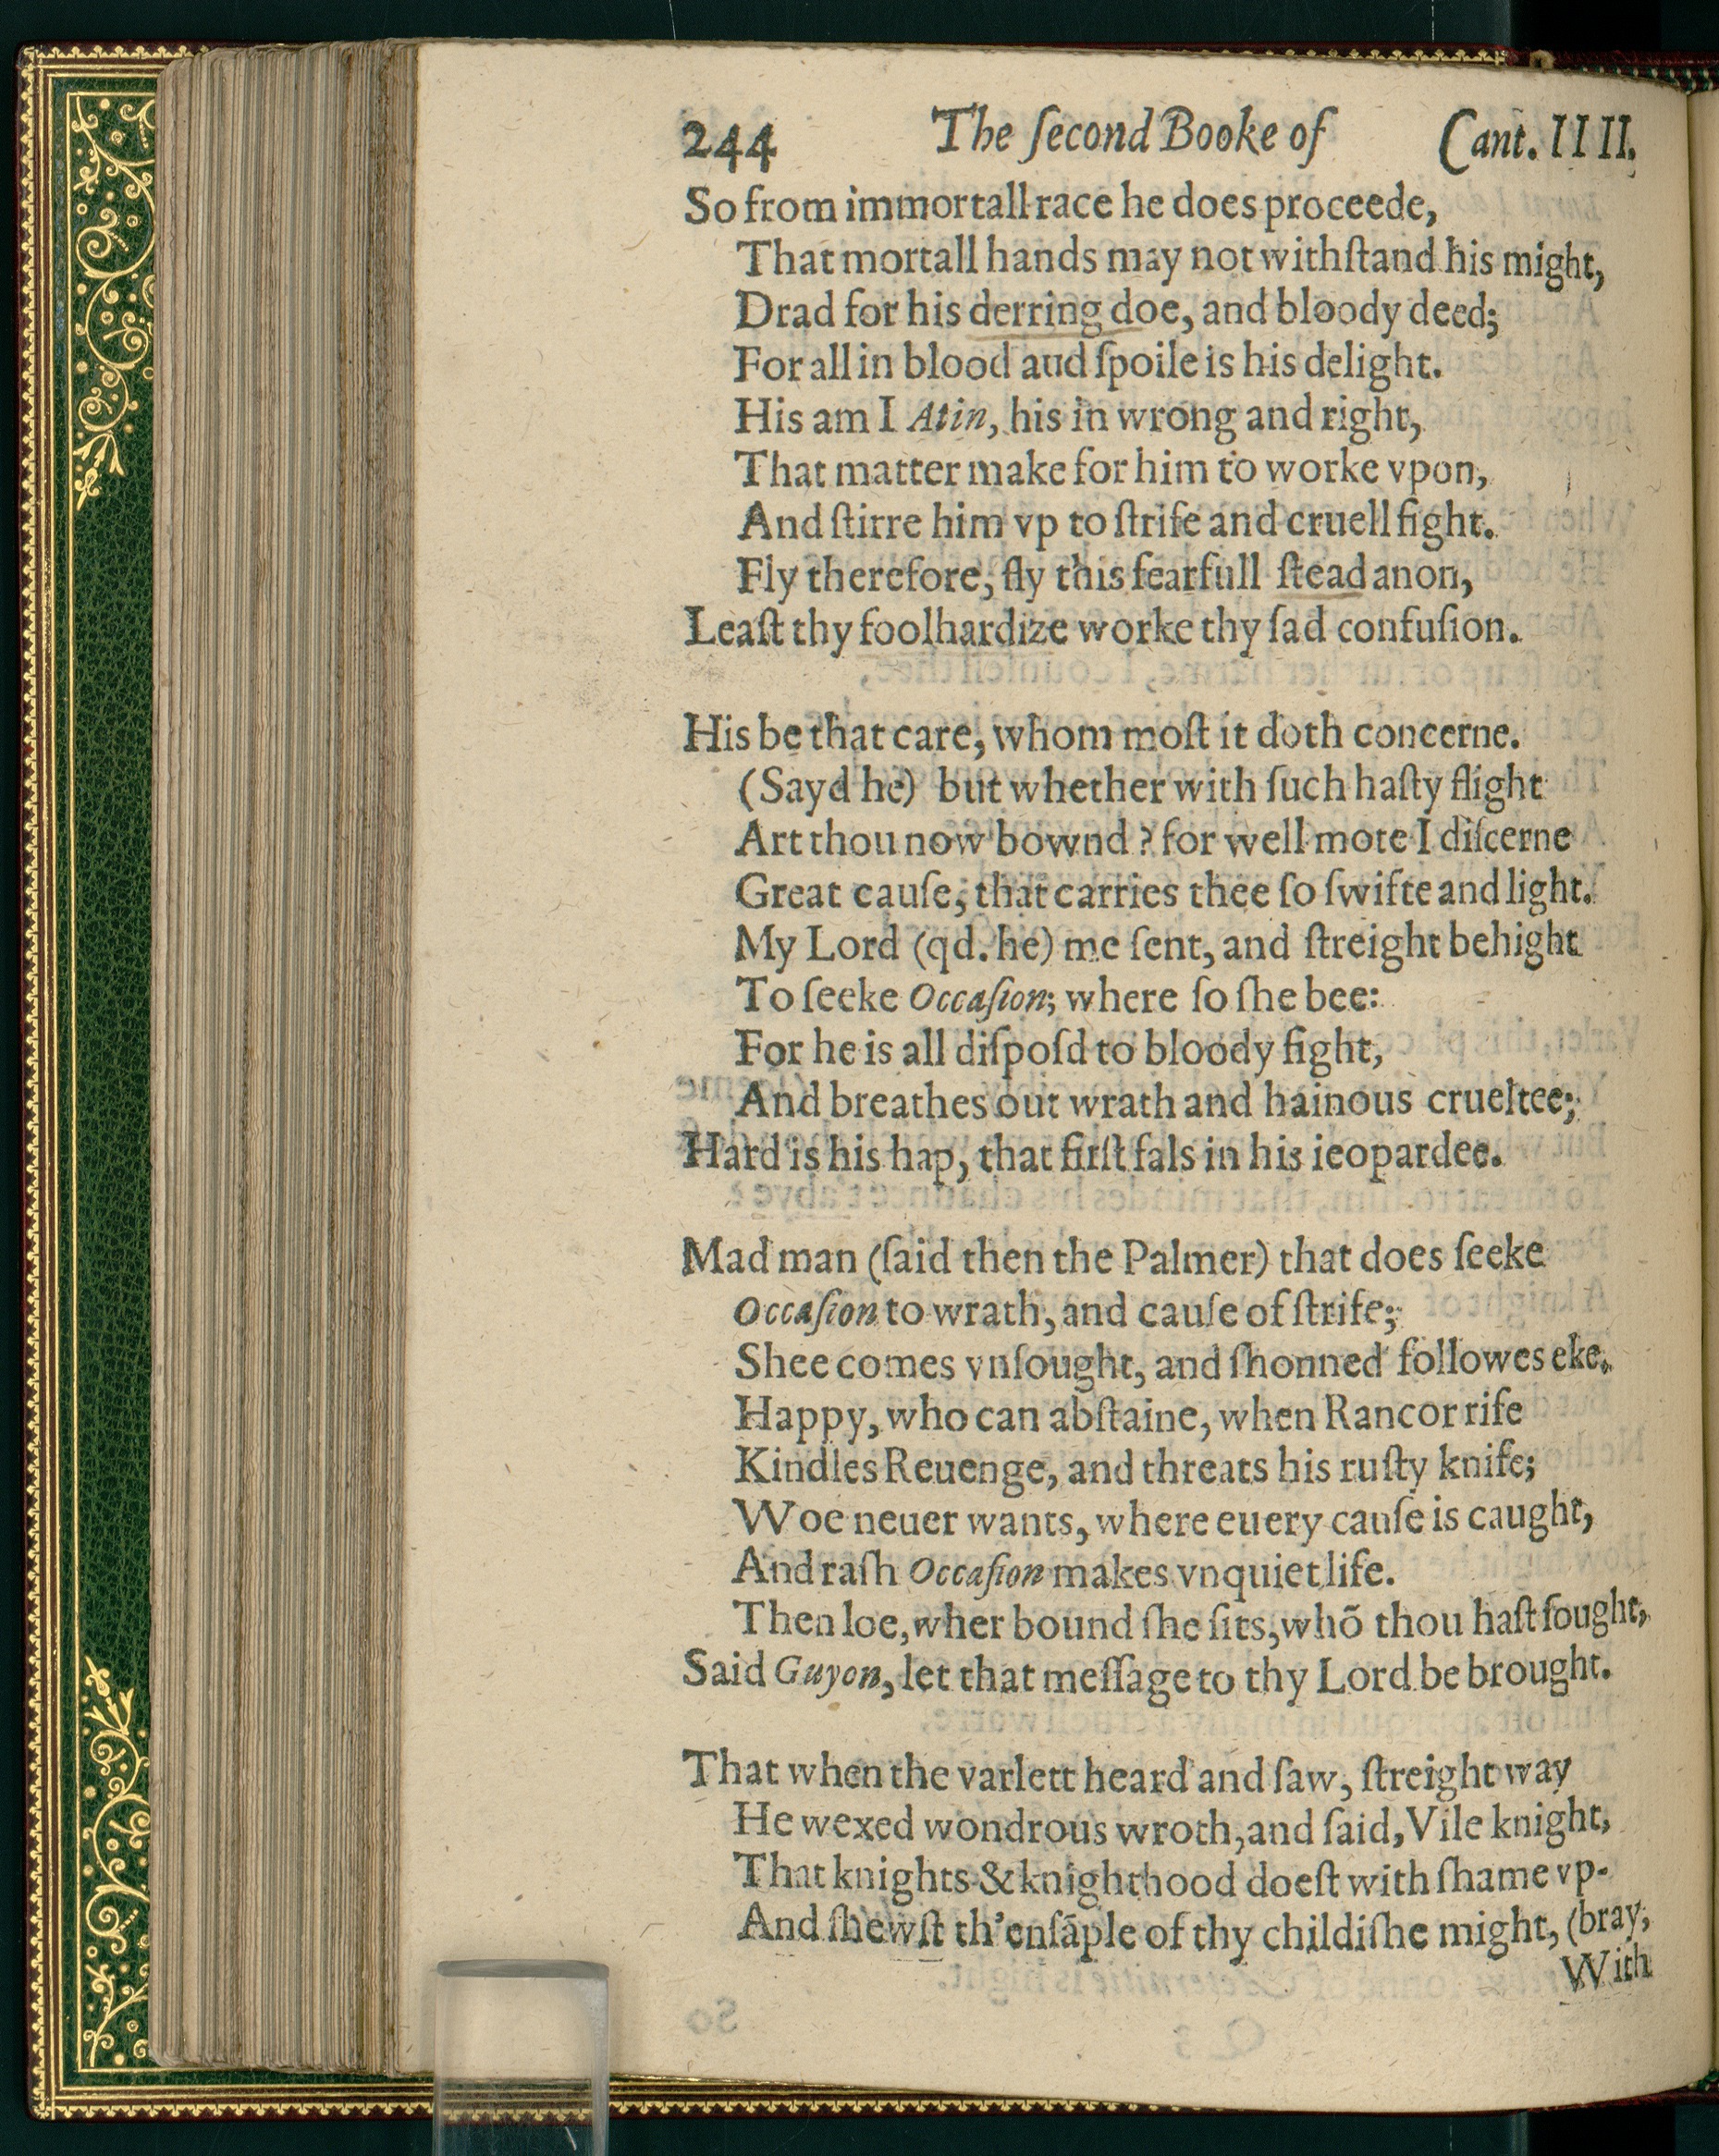 244 The ſecond Booke of Cant. IIII.
So from immortall race he does proceede,
That mortall hands may not withſtand his might,
Drad for his derring doe, and bloody deed;
For all in blood aud ſpoile is his delight.
His am I Atin, his in wrong and right,
That matter make for him to worke vpon,
And ſtirre him vp to ſtrife and cruell fight.
Fly therefore, fly this fearfull ſtead anon,
Leaſt thy foolhardize worke thy ſad confuſion.
His be that care, whom moſt it doth concerne.
(Sayd he) but whether with ſuch haſty flight
Art thou now bownd? for well mote I diſcerne
Great cauſe, that carries thee ſo ſwifte and light.
My Lord (qd. he) me ſent, and ſtreight behight
To ſeeke Occaſion; where ſo ſhe bee:
For he is all diſpoſd to bloody fight,
And breathes out wrath and hainous crueltee;
Hard is his hap, that firſt fals in his ieopardee.
Mad man (ſaid then the Palmer) that does ſeeke
Occaſion to wrath, and cauſe of ſtrife;
Shee comes vnſought, and ſhonned followes eke.
Happy, who can abſtaine, when Rancor rife
Kindles Reuenge, and threats his ruſty knife;
Woe neuer wants, where euery cauſe is caught,
And raſh Occaſion makes vnquiet life.
Then loe, wher bound ſhe ſits, whõ thou haſt ſought,
Said Guyon, let that meſſage to thy Lord be brought.
That when the varlett heard and ſaw, ſtreight way
He wexed wondrous wroth, and ſaid, Vile knight,
That knights & knighthood doeſt with ſhame vp-
And ſhewſt th'enſãple of thy childiſhe might, (bray,
With